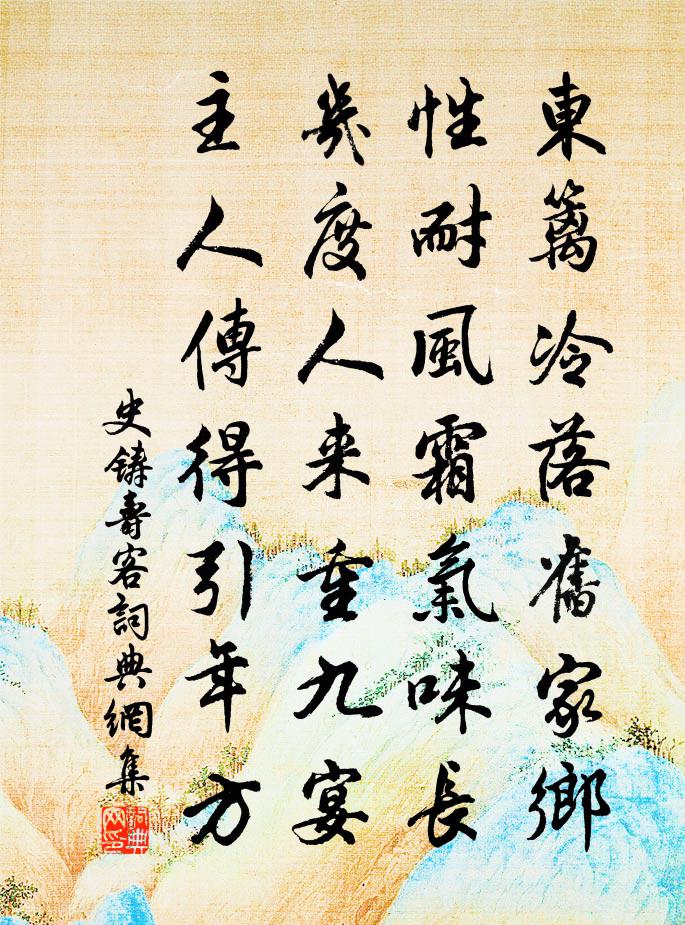 東籬冷落舊家鄉
性耐風霜氣味長
幾度人来重九宴
主人傳得引年方
史鑄壽客詞典網集
詞典網印